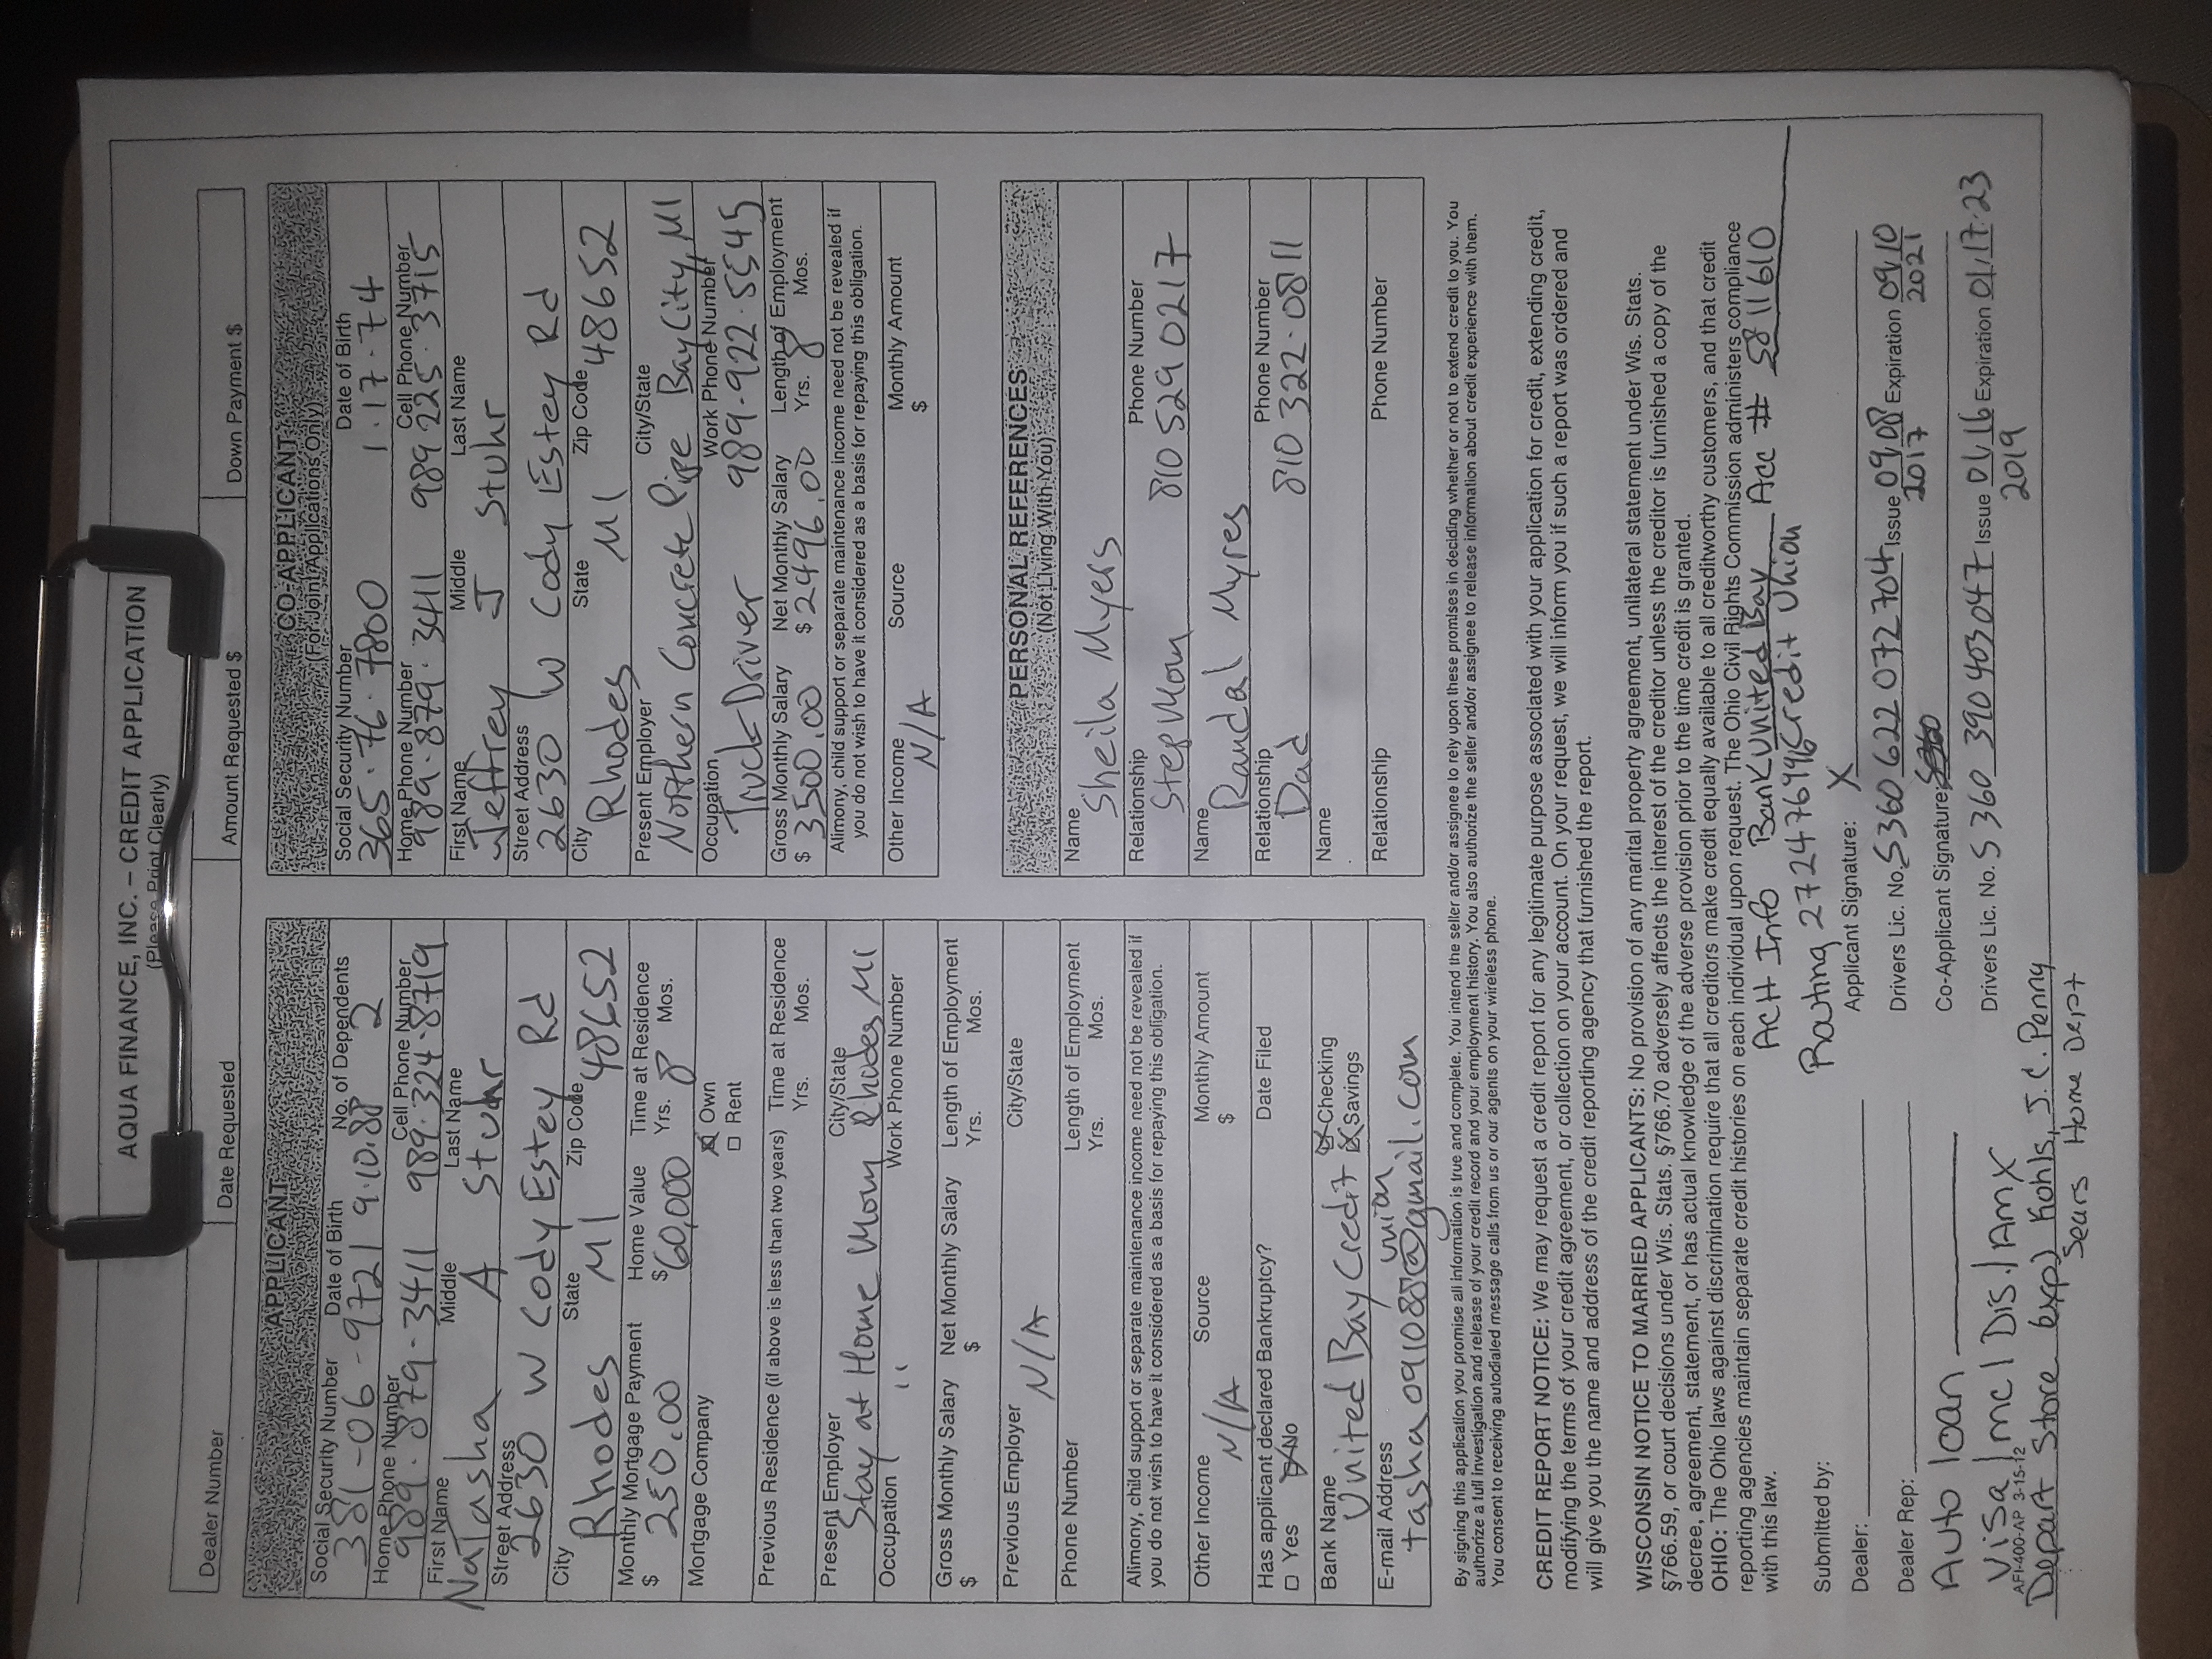 AQUA FINANCE, INC. – CREDIT APPLICATION
(Please Print Clearly)
Dealer Number
Date Requested
Amount Requested $
Down Payment $
APPLICANT
Social Security Number Date of Birth No. of Dependents
381-06-9721 9.10.88 2
Home Phone Number Cell Phone Number
989.879-3411 989.324-8719
First Name Middle Last Name
Natasha A Stuhr
Street Address
2630 W Cody Estey Rd
City State Zip Code
Rhodes MI 48652
Monthly Mortgage Payment Home Value Time at Residence
$ 250.00 $ 60,000 Yrs. 8 Mos.
Mortgage Company Own
Rent
Previous Residence (if above is less than two years) Time at Residence
Yrs. Mos.
Present Employer City/State
Stay at Home Mom Rhodes MI
Occupation Work Phone Number
Gross Monthly Salary Net Monthly Salary Length of Employment
$ $ Yrs. Mos.
Previous Employer City/State
N/A
Phone Number Length of Employment
Yrs. Mos.
Alimony, child support or separate maintenance income need not be revealed if
you do not wish to have it considered as a basis for repaying this obligation.
Other Income Source Monthly Amount
N/A $
Has applicant declared Bankruptcy? Date Filed
Yes No
Bank Name Checking
United Bay Credit Union Savings
E-mail Address
tasha091088@gmail.com
CO-APPLICANT
(For Joint Applications Only)
Social Security Number Date of Birth
365.76.7800 1.17.74
Home Phone Number Cell Phone Number
989.879.3411 989 225.3715
First Name Middle Last Name
Jeffrey J Stuhr
Street Address
2630 W Cody Estey Rd
City State Zip Code
Rhodes MI 48652
Present Employer City/State
Northern Concrete Pipe Bay City, MI
Occupation Work Phone Number
Truck Driver 989-922-5545
Gross Monthly Salary Net Monthly Salary Length of Employment
$ 3500.00 $ 2496.00 Yrs. 8 Mos.
Alimony, child support or separate maintenance income need not be revealed if
you do not wish to have it considered as a basis for repaying this obligation.
Other Income Source Monthly Amount
N/A $
PERSONAL REFERENCES
(Not Living With You)
Name
Sheila Myers
Relationship Phone Number
Step Mom 810 529 0217
Name
Randal Myres
Relationship Phone Number
Dad 810 322-0811
Name
Relationship Phone Number
By signing this application you promise all information is true and complete. You intend the seller and/or assignee to rely upon these promises in deciding whether or not to extend credit to you. You
authorize a full investigation and release of your credit record and your employment history. You also authorize the seller and/or assignee to release information about credit experience with them.
You consent to receiving autodialed message calls from us or our agents on your wireless phone.
CREDIT REPORT NOTICE: We may request a credit report for any legitimate purpose associated with your application for credit, extending credit,
modifying the terms of your credit agreement, or collection on your account. On your request, we will inform you if such a report was ordered and
will give you the name and address of the credit reporting agency that furnished the report.
WISCONSIN NOTICE TO MARRIED APPLICANTS: No provision of any marital property agreement, unilateral statement under Wis. Stats.
§766.59, or court decisions under Wis. Stats. §766.70 adversely affects the interest of the creditor unless the creditor is furnished a copy of the
decree, agreement, statement, or has actual knowledge of the adverse provision prior to the time credit is granted.
OHIO: The Ohio laws against discrimination require that all creditors make credit equally available to all creditworthy customers, and that credit
reporting agencies maintain separate credit histories on each individual upon request. The Ohio Civil Rights Commission administers compliance
with this law.
ACH Info Bank United Bay Acc # 5811610
Routing 272476996 Credit Union
Submitted by:
Applicant Signature: X
Dealer:
Drivers Lic. No. S360 622 072 704 Issue 09/08 2017 Expiration 09/10 2021
Dealer Rep:
Co-Applicant Signature:
Drivers Lic. No. S 360 390 403 047 Issue 01/16 2019 Expiration 01/17.23
Auto loan
Visa / mc / Dis. / Amx
AFI-400-AP 3-15-12
Depart Store exp) Kohls, J.C. Penny
Sears Home Dept